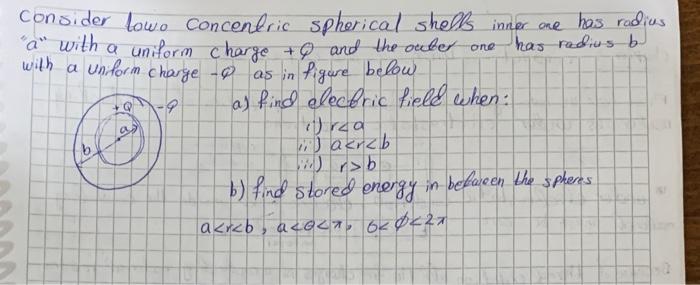 Consider towo concentric spherical shells inner one has radius
"a" with a uniform charge +Q and the outer one has radius b
with a uniform charge -Q as in figure below
+Q -Q
a
b
a) find electric field when:
i) r<a
ii) a<r<b
iii) r>b
b) find stored energy in between the spheres
a<r<b, a<θ<π, 0<φ<2π